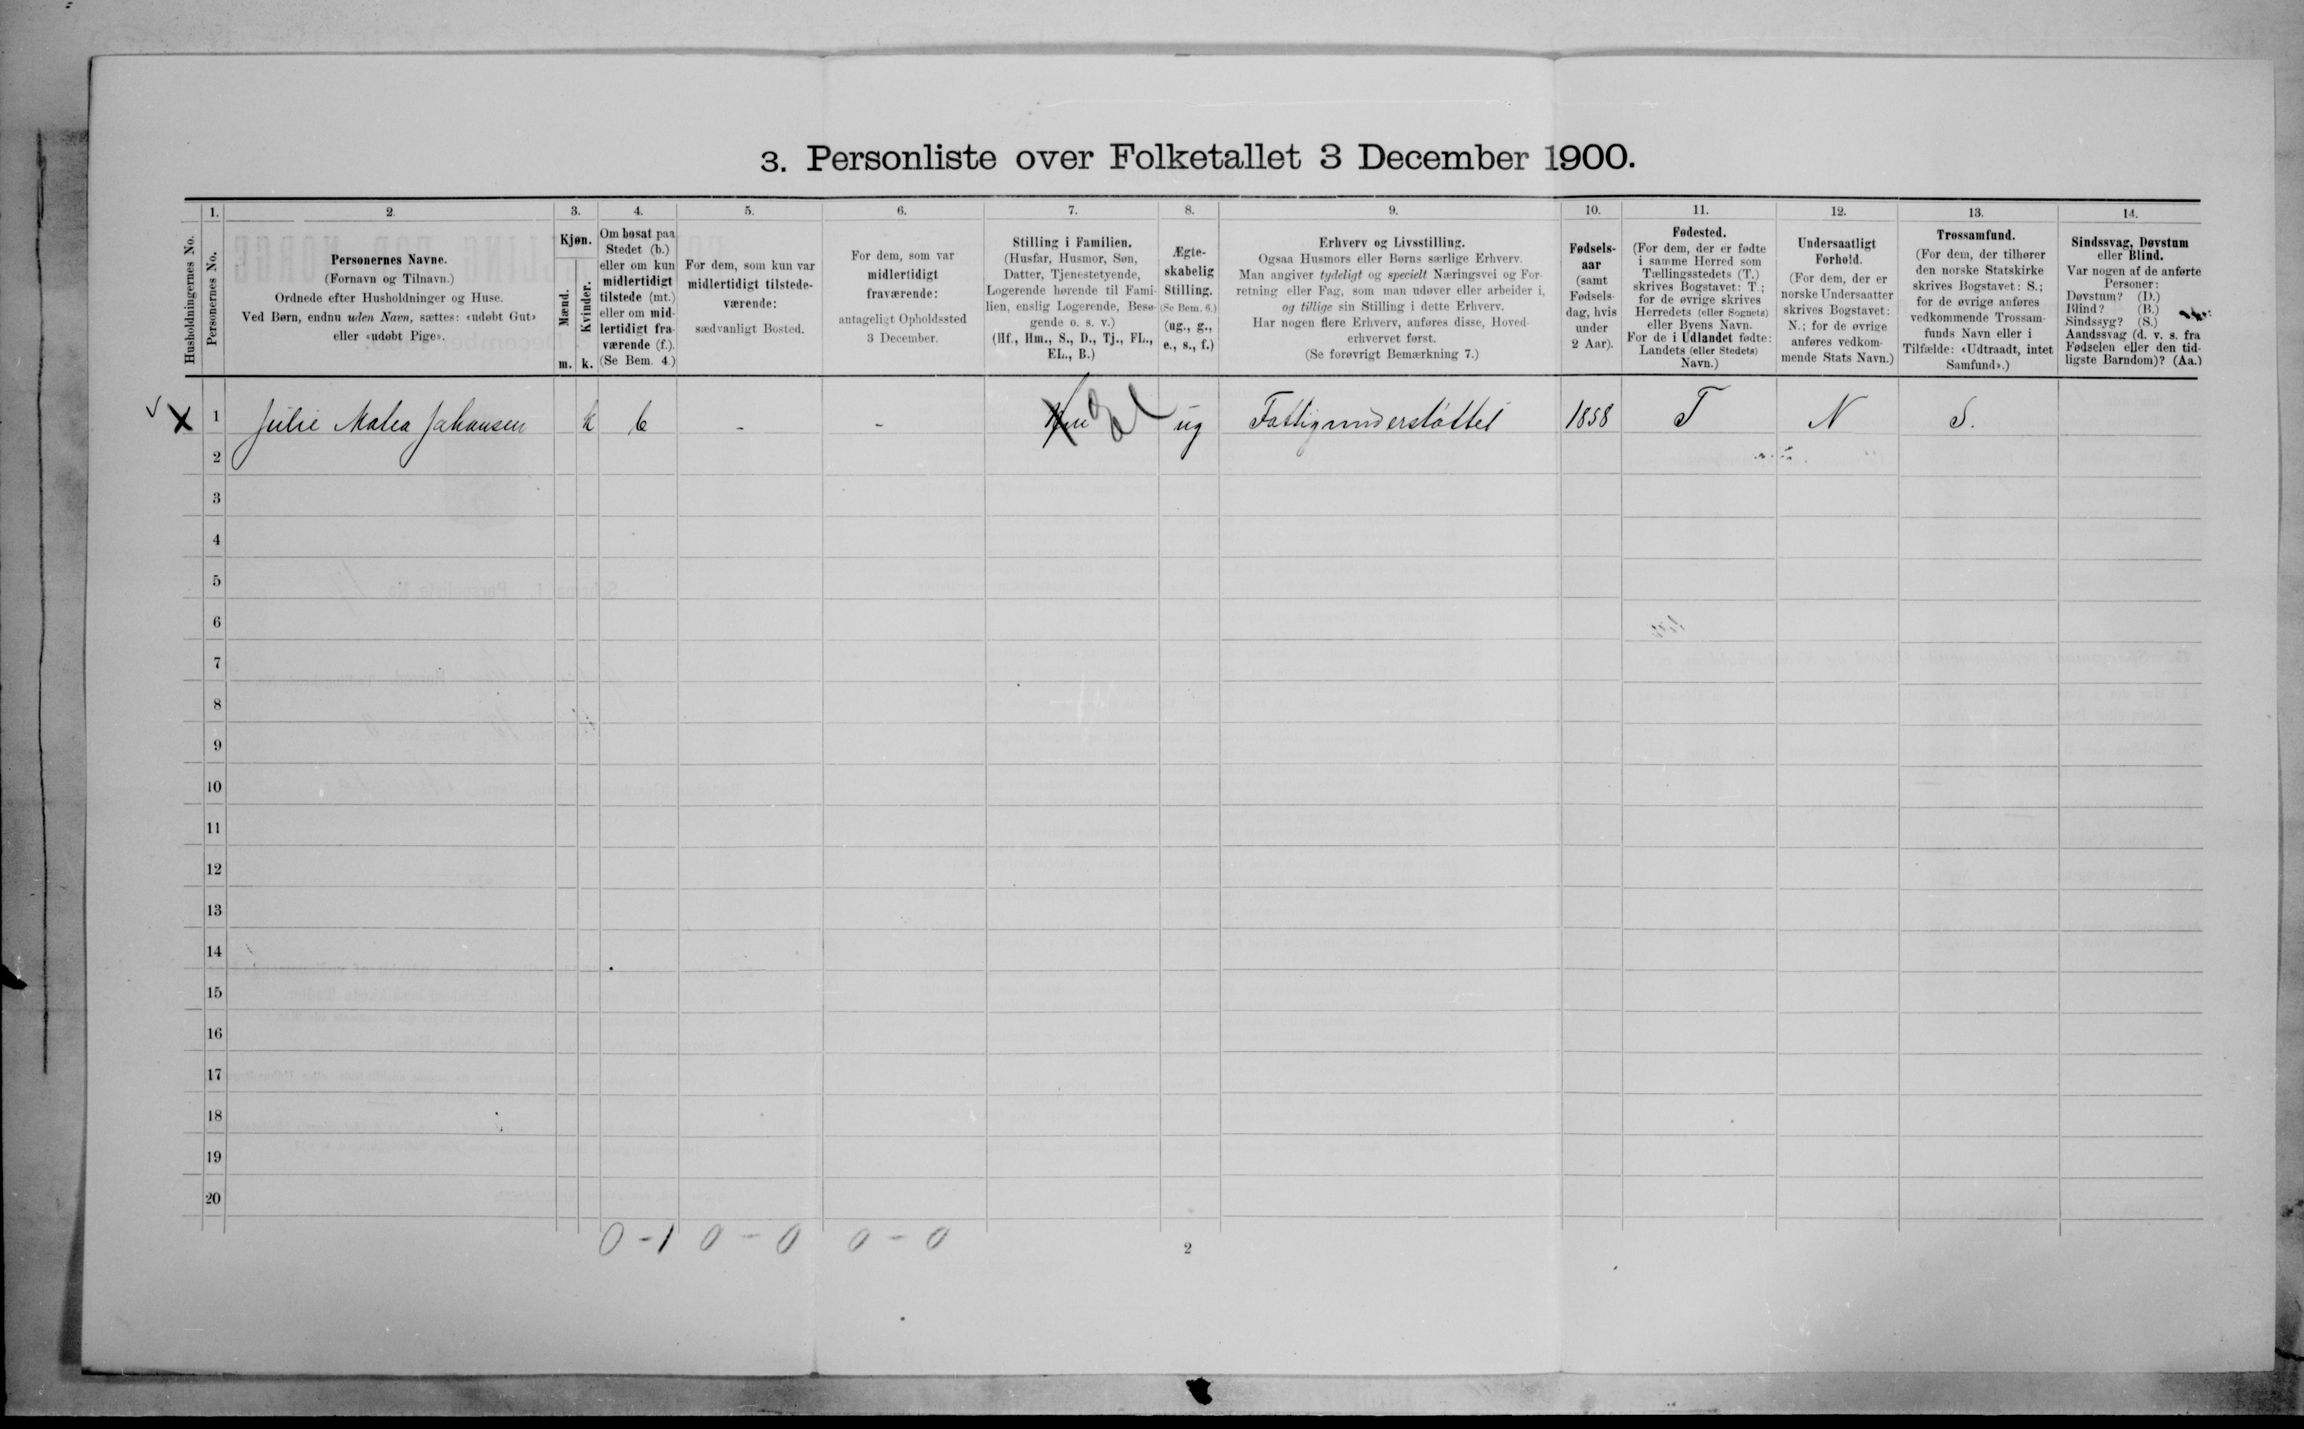 3. Personliste over Folketallet 3 December 1900.
Husholdningernes No.
1.
Personernes No.
2.
Personernes Navne.
(Fornavn og Tilnavn.)
Ordnede efter Husholdninger og Huse.
Ved Børn, endnu uden Navn, sættes: «udøbt Gut»
eller «udøbt Pige».
3.
Kjøn.
Mænd.
Kvinder.
m. k.
4.
Om bosat paa
Stedet (b.)
eller om kun
midlertidigt
tilstede (mt.)
eller om mid-
lertidigt fra-
værende (f.).
(Se Bem. 4.)
5.
For dem, som kun var
midlertidigt tilstede-
værende:
sædvanligt Bosted.
6.
For dem, som var
midlertidigt
fraværende:
antageligt Opholdssted
3 December.
7.
Stilling i Familien.
(Husfar, Husmor, Søn,
Datter, Tjenestetyende,
Logerende hørende til Fami-
lien, enslig Logerende, Besø-
gende o. s. v.)
(Hf., Hm., S., D., Tj., FL.,
EL., B.)
8.
Ægte-
skabelig
Stilling.
(Se Bem. 6.)
(ug., g.,
e., s., f.)
9.
Erhverv og Livsstilling.
Ogsaa Husmors eller Børns særlige Erhverv.
Man angiver tydeligt og specielt Næringsvei og For-
retning eller Fag, som man udøver eller arbeider i,
og tillige sin Stilling i dette Erhverv.
Har nogen flere Erhverv, anføres disse, Hoved-
erhvervet først.
(Se forøvrigt Bemærkning 7.)
10.
Fødsels-
aar
(samt
Fødsels-
dag, hvis
under
2 Aar).
11.
Fødested.
(For dem, der er fødte
i samme Herred som
Tællingsstedets (T.)
skrives Bogstavet: T.;
for de øvrige skrives
Herredets (eller Sognets)
eller Byens Navn.
For de i Udlandet fødte:
Landets (eller Stedets)
Navn.)
12.
Undersaatligt
Forhold.
(For dem, der er
norske Undersaatter
skrives Bogstavet:
N.; for de øvrige
anføres vedkom-
mende Stats Navn.)
13.
Trossamfund.
(For dem, der tilhører
den norske Statskirke
skrives Bogstavet: S.;
for de øvrige anføres
vedkommende Trossam-
funds Navn eller i
Tilfælde: «Udtraadt, intet
Samfund».)
14.
Sindssvag, Døvstum
eller Blind.
Var nogen af de anførte
Personer:
Døvstum? (D.)
Blind? (B.)
Sindssyg? (S.)
Aandssvag (d. v. s. fra
Fødselen eller den tid-
ligste Barndom)? (Aa.)
X 1 Julie Malea Johansen k b - - el ug Fattigunderstøttet 1858 T N S.
2
3
4
5
6
7
8
9
10
11
12
13
14
15
16
17
18
19
20
0 - 1 0 - 0 0 - 0
2